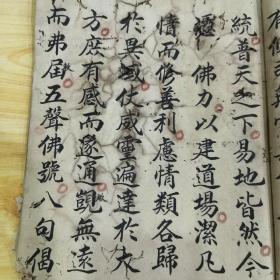 統普天之下易地皆然今
遷佛力以建道場潔凡
情而修善利慮情類各歸
於異域仗威靈遍達於大
方庶有感而遂通凱無遠
而弗届五聲佛號八句偈